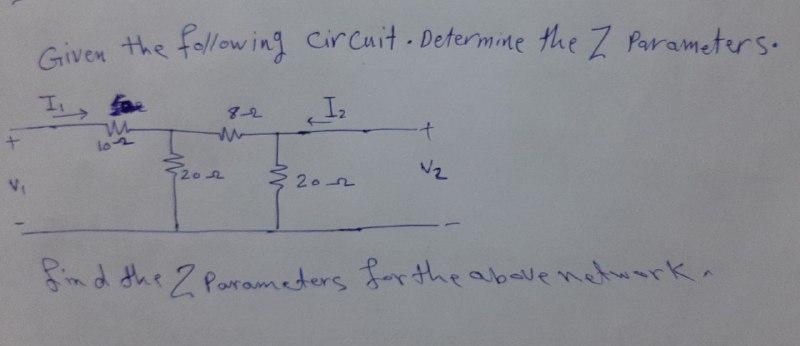 Given the following circuit. Determine the Z Parameters.
I1 → 8Ω ← I2
+ 10Ω +
V1 20Ω 20Ω V2
- -
find the Z Parameters for the above network.